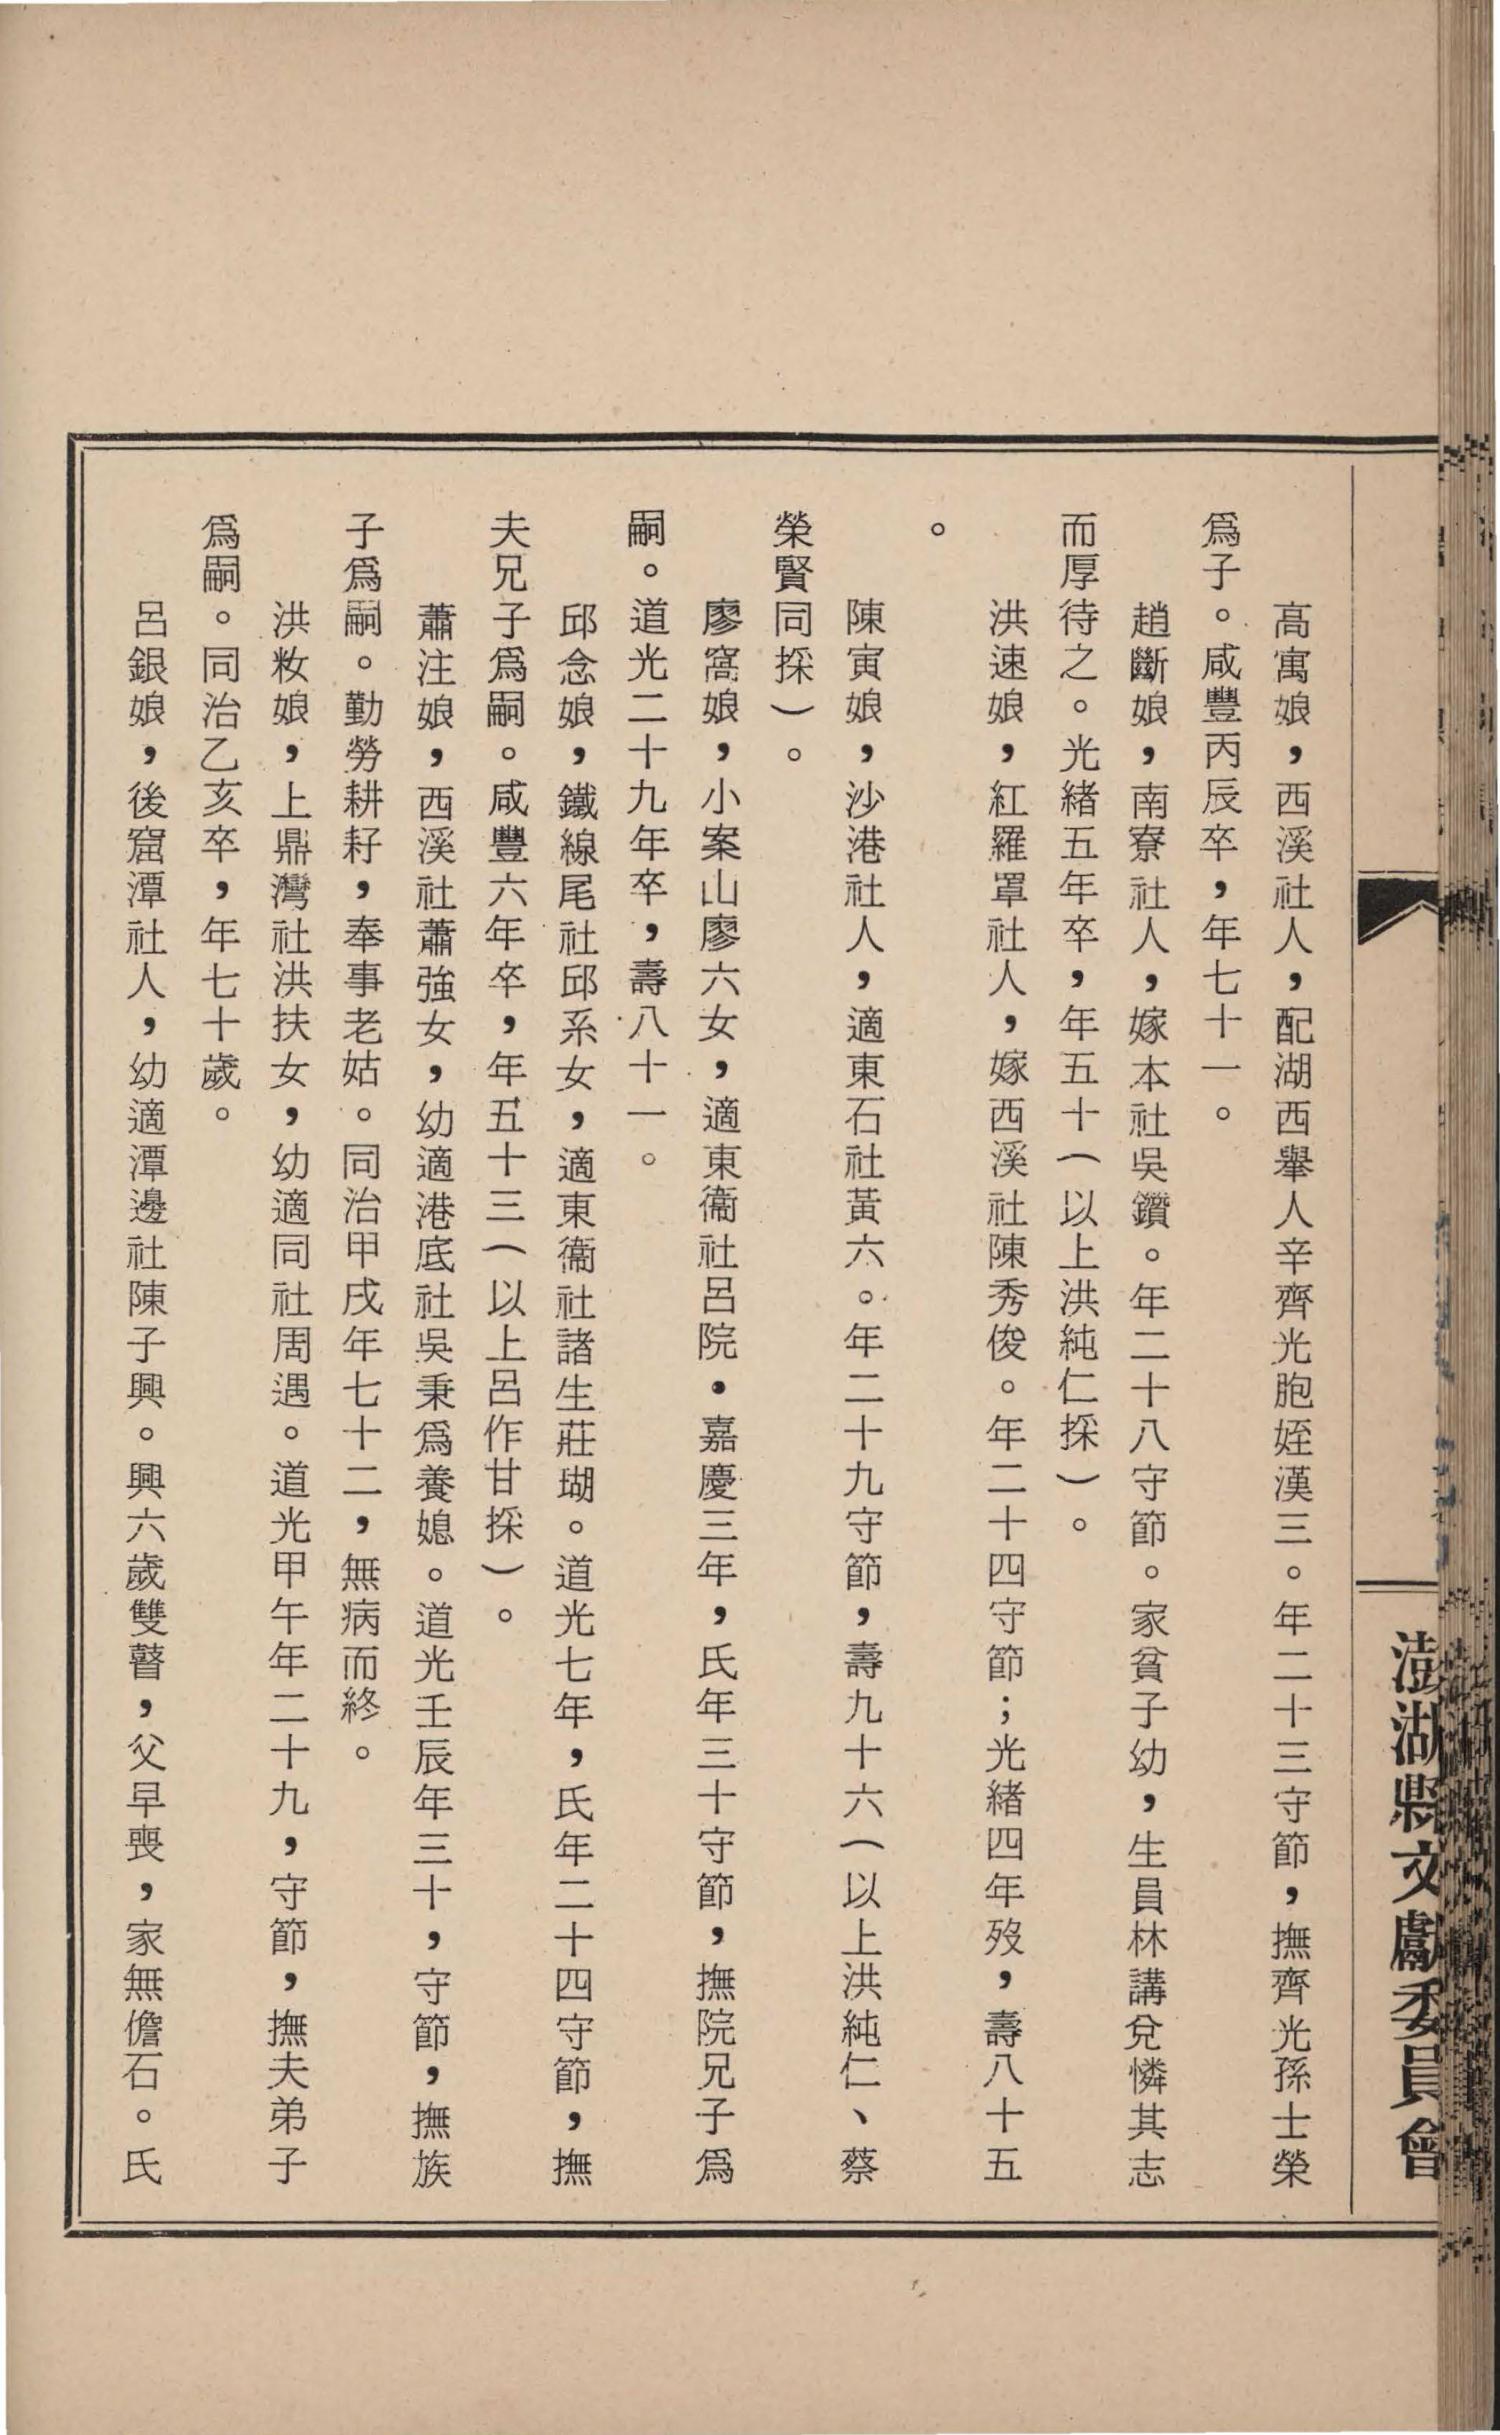 澎湖縣文獻委員會
高寓娘，西溪社人，配湖西舉人辛齊光胞姪漢三。年二十三守節，撫齊光孫士榮
爲子。咸豐丙辰卒，年七十一。
趙斷娘，南寮社人，嫁本社吳鑽。年二十八守節。家貧子幼，生員林講兌憐其志
而厚待之。光緒五年卒，年五十（以上洪純仁採）。
洪速娘，紅羅罩社人，嫁西溪社陳秀俊。年二十四守節；光緒四年歿，壽八十五
。
陳寅娘，沙港社人，適東石社黃六。年二十九守節，壽九十六（以上洪純仁、蔡
榮賢同採）。
廖窩娘，小案山廖六女，適東衞社呂院・嘉慶三年，氏年三十守節，撫院兄子爲
嗣。道光二十九年卒，壽八十一。
邱念娘，鐵線尾社邱系女，適東衞社諸生莊瑚。道光七年，氏年二十四守節，撫
夫兄子爲嗣。咸豐六年卒，年五十三（以上呂作甘採）。
蕭注娘，西溪社蕭強女，幼適港底社吳秉爲養媳。道光壬辰年三十，守節，撫族
子爲嗣。勤勞耕耔，奉事老姑。同治甲戌年七十二，無病而終。
洪籹娘，上鼎灣社洪扶女，幼適同社周遇。道光甲午年二十九，守節，撫夫弟子
爲嗣。同治乙亥卒，年七十歲。
呂銀娘，後窟潭社人，幼適潭邊社陳子興。興六歲雙瞽，父早喪，家無儋石。氏